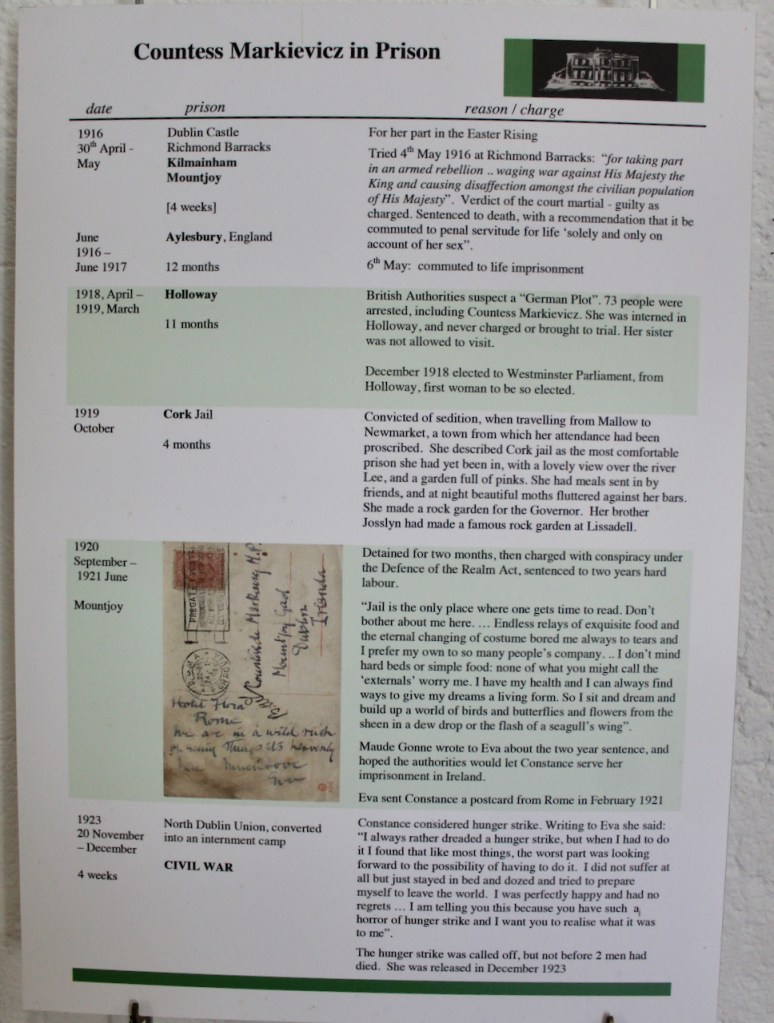 Countess Markievicz in Prison
date prison reason / charge
1916
30th April -
May
Dublin Castle
Richmond Barracks
Kilmainham
Mountjoy
[4 weeks]
For her part in the Easter Rising
Tried 4th May 1916 at Richmond Barracks: "for taking part
in an armed rebellion .. waging war against His Majesty the
King and causing disaffection amongst the civilian population
of His Majesty". Verdict of the court martial - guilty as
charged. Sentenced to death, with a recommendation that it be
commuted to penal servitude for life 'solely and only on
account of her sex".
6th May: commuted to life imprisonment
June
1916 –
June 1917
Aylesbury, England
12 months
1918, April –
1919, March
Holloway
11 months
British Authorities suspect a "German Plot". 73 people were
arrested, including Countess Markievicz. She was interned in
Holloway, and never charged or brought to trial. Her sister
was not allowed to visit.
December 1918 elected to Westminster Parliament, from
Holloway, first woman to be so elected.
1919
October
Cork Jail
4 months
Convicted of sedition, when travelling from Mallow to
Newmarket, a town from which her attendance had been
proscribed. She described Cork jail as the most comfortable
prison she had yet been in, with a lovely view over the river
Lee, and a garden full of pinks. She had meals sent in by
friends, and at night beautiful moths fluttered against her bars.
She made a rock garden for the Governor. Her brother
Josslyn had made a famous rock garden at Lissadell.
1920
September –
1921 June
Mountjoy
Mountjoy Gaol
Dublin
Irlanda
Rome
we are in a wild rush
Detained for two months, then charged with conspiracy under
the Defence of the Realm Act, sentenced to two years hard
labour.
"Jail is the only place where one gets time to read. Don't
bother about me here. ... Endless relays of exquisite food and
the eternal changing of costume bored me always to tears and
I prefer my own to so many people's company. .. I don't mind
hard beds or simple food: none of what you might call the
'externals' worry me. I have my health and I can always find
ways to give my dreams a living form. So I sit and dream and
build up a world of birds and butterflies and flowers from the
sheen in a dew drop or the flash of a seagull's wing".
Maude Gonne wrote to Eva about the two year sentence, and
hoped the authorities would let Constance serve her
imprisonment in Ireland.
Eva sent Constance a postcard from Rome in February 1921
1923
20 November
– December
4 weeks
North Dublin Union, converted
into an internment camp
CIVIL WAR
Constance considered hunger strike. Writing to Eva she said:
"I always rather dreaded a hunger strike, but when I had to do
it I found that like most things, the worst part was looking
forward to the possibility of having to do it. I did not suffer at
all but just stayed in bed and dozed and tried to prepare
myself to leave the world. I was perfectly happy and had no
regrets ... I am telling you this because you have such a
horror of hunger strike and I want you to realise what it was
to me".
The hunger strike was called off, but not before 2 men had
died. She was released in December 1923